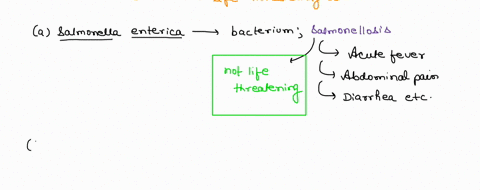 (a) Salmonella enterica → bacterium; Salmonellosis
→ Acute fever
not life
threatening
→ Abdominal pain
→ Diarrhea etc.
(